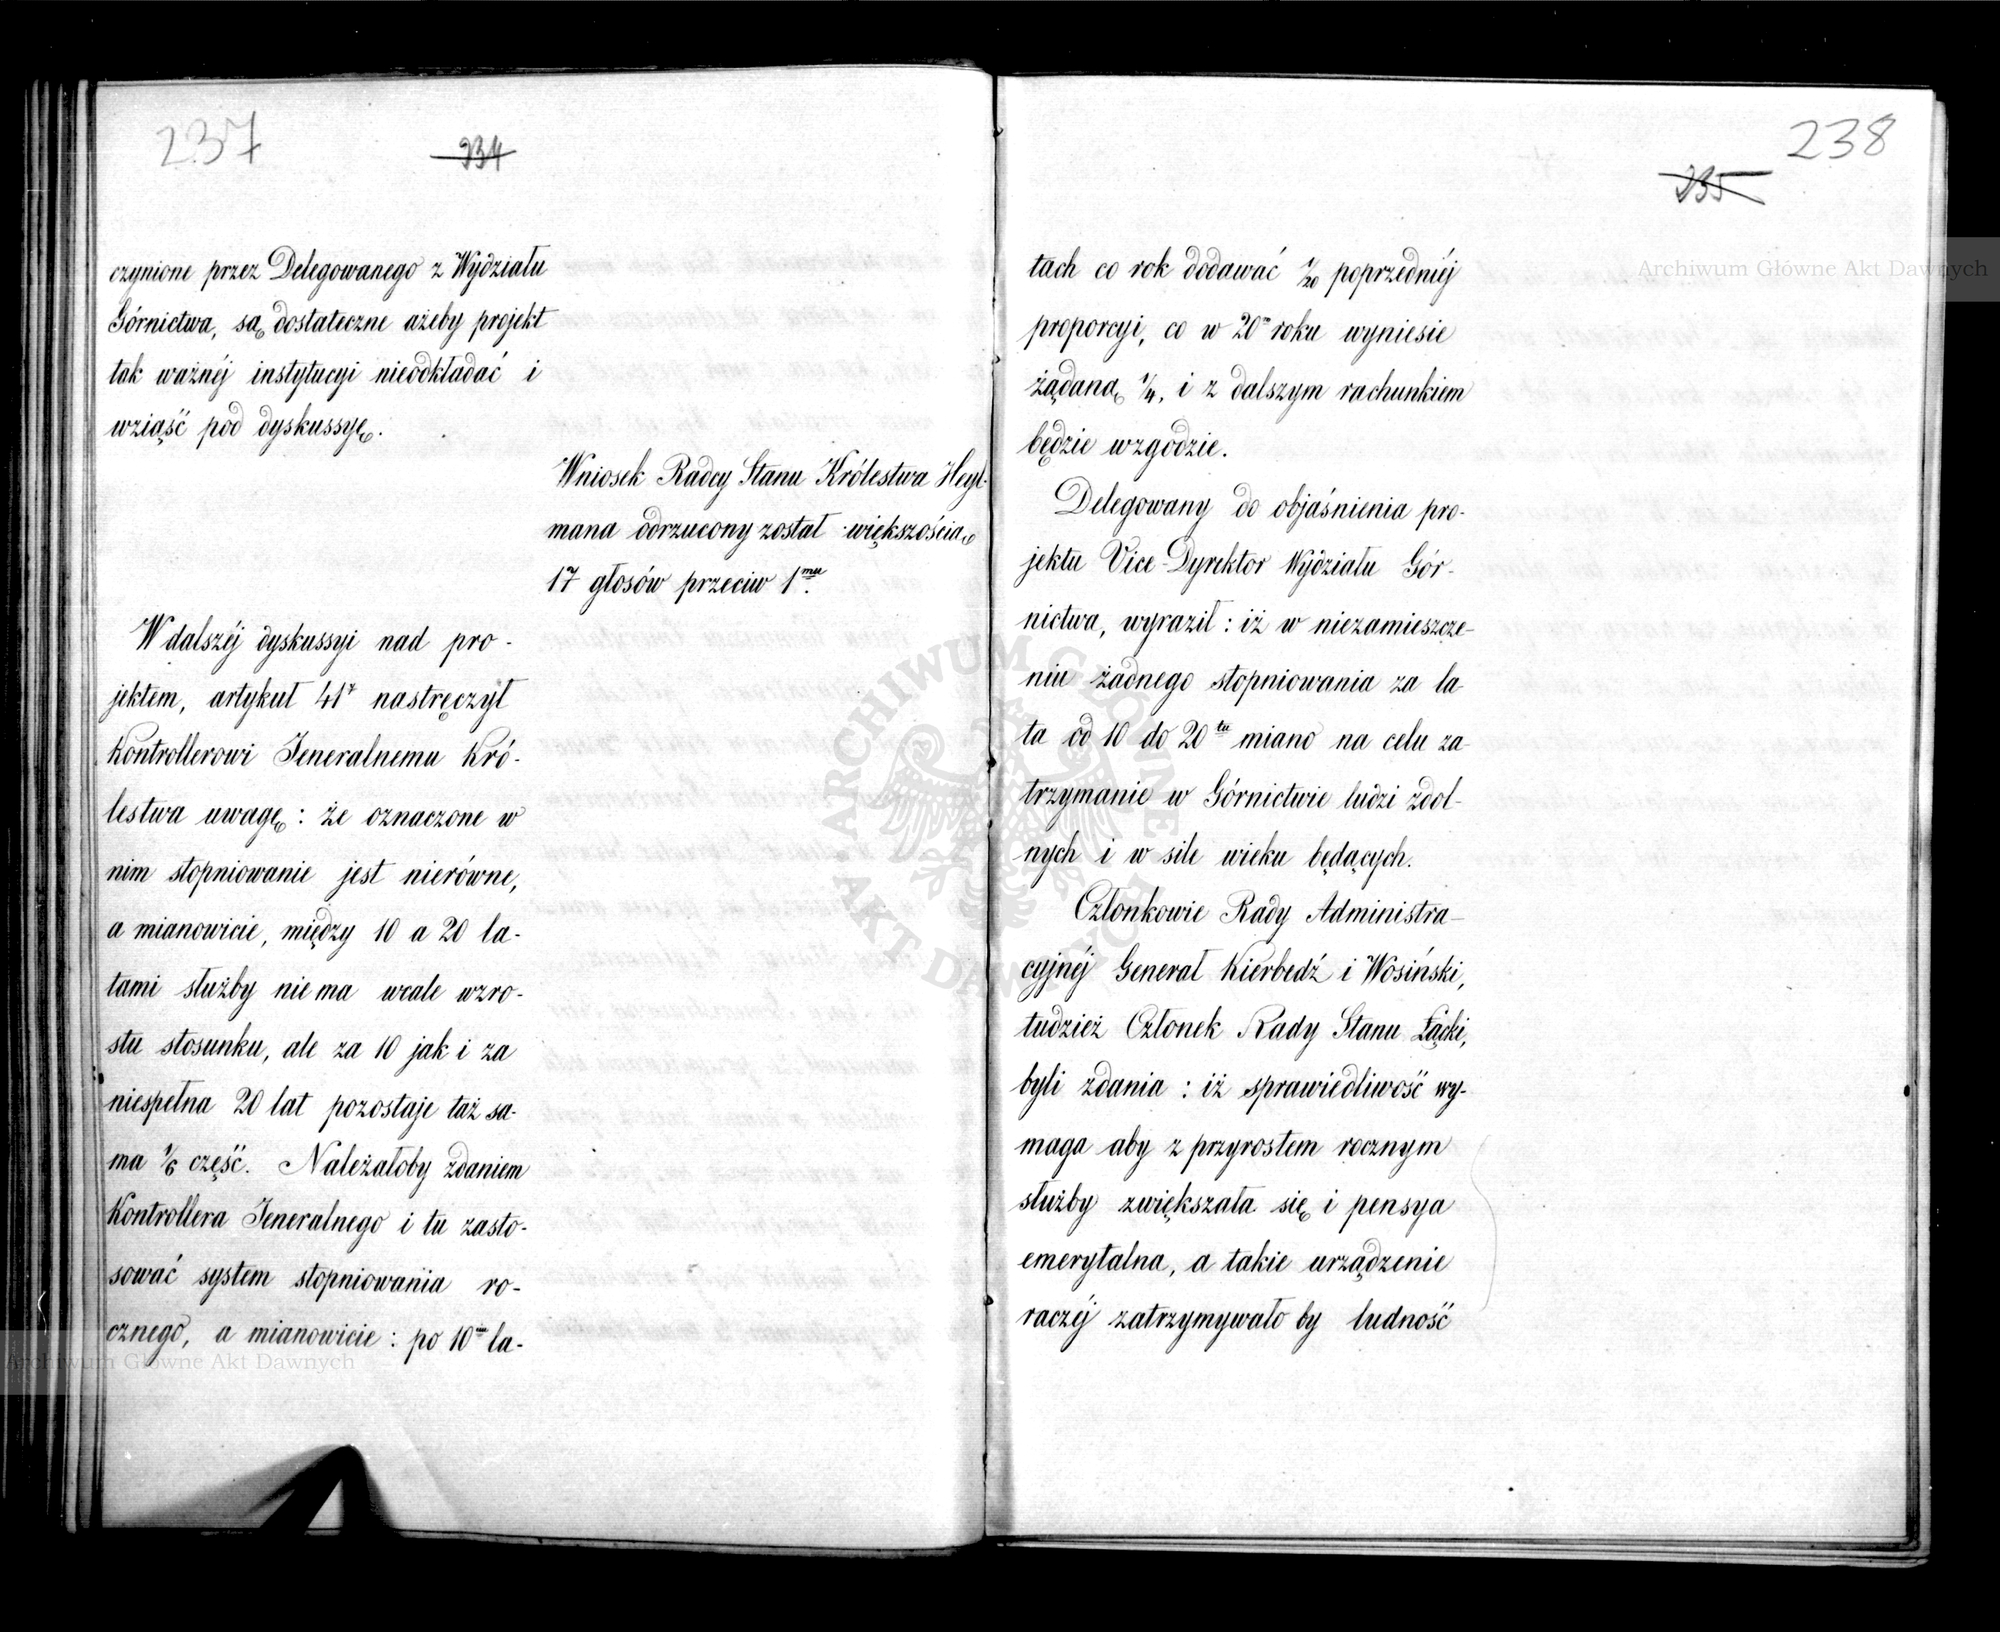 237
234
czynione przez Delegowanego z Wydziału
Górnictwa, są dostateczne ażeby projekt
tak ważnéj instytucyi nieodkładać i
wziąść pod dyskussyę.
Wniosek Radcy Stanu Królestwa Heyl-
mana odrzucony został większością
17 głosów przeciw 1mu.
W dalszéj dyskussyi nad pro-
jektem, artykuł 41y nastręczył
Kontrollerowi Jeneralnemu Kró-
lestwa uwagę: że oznaczone w
nim stopniowanie jest nierówne,
a mianowicie, między 10 a 20 la-
tami służby niema wcale wzro-
stu stosunku, ale za 10 jak i za
niespełna 20 lat pozostaje taż sa-
ma 1/6 część. Należałoby zdaniem
Kontrollera Jeneralnego i tu zasto-
sować system stopniowania ro-
cznego, a mianowicie: po 10iu la-
238
235
tach co rok dodawać 1/20 poprzedniéj
proporcyi, co w 20m roku wyniesie
żądaną 1/4, i z dalszym rachunkiem
będzie w zgodzie.
Delegowany do objaśnienia pro-
jektu Vice-Dyrektor Wydziału Gór-
nictwa, wyraził: iż w niezamieszcze-
niu żadnego stopniowania za la-
ta od 10 do 20tu miano na celu za-
trzymanie w Górnictwie ludzi zdol-
nych i w sile wieku będących.
Członkowie Rady Administra-
cyjnéj Generał Kierbedź i Wosiński,
tudzież Członek Rady Stanu Łącki,
byli zdania: iż sprawiedliwość wy-
maga aby z przyrostem rocznym
służby zwiększała się i pensya
emerytalna, a takie urządzenie
raczéj zatrzymywało by ludność
Archiwum Główne Akt Dawnych
Archiwum Główne Akt Dawnych
ARCHIWUM GŁÓWNE
AKT DAWNYCH